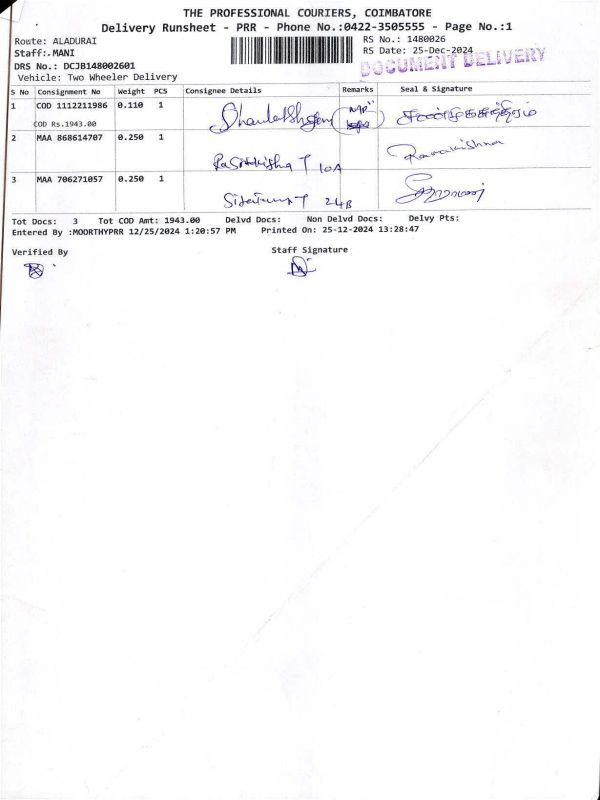 THE PROFESSIONAL COURIERS, COIMBATORE
Delivery Runsheet - PRR - Phone No.:0422-3505555 - Page No.:1
Route: ALADURAI
RS No.: 1480026
Staff:.MANI
RS Date: 25-Dec-2024
DOCUMENT DELIVERY
DRS No.: DCJB148002601
Vehicle: Two Wheeler Delivery
S No Consignment No Weight PCS Consignee Details Remarks Seal & Signature
1 COD 1112211986 0.110 1
COD Rs.1943.00
2 MAA 868614707 0.250 1 Ramakrishna
10A
3 MAA 706271057 0.250 1
24B
Tot Docs: 3 Tot COD Amt: 1943.00 Delvd Docs: Non Delvd Docs: Delvy Pts:
Entered By :MOORTHYPRR 12/25/2024 1:20:57 PM Printed On: 25-12-2024 13:28:47
Verified By Staff Signature